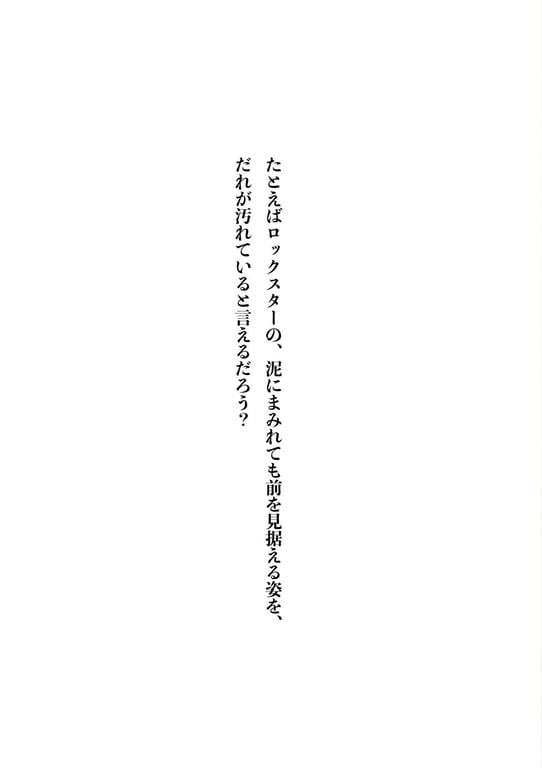 たとえばロックスターの、泥にまみれても前を見据える姿を、
だれが汚れていると言えるだろう？